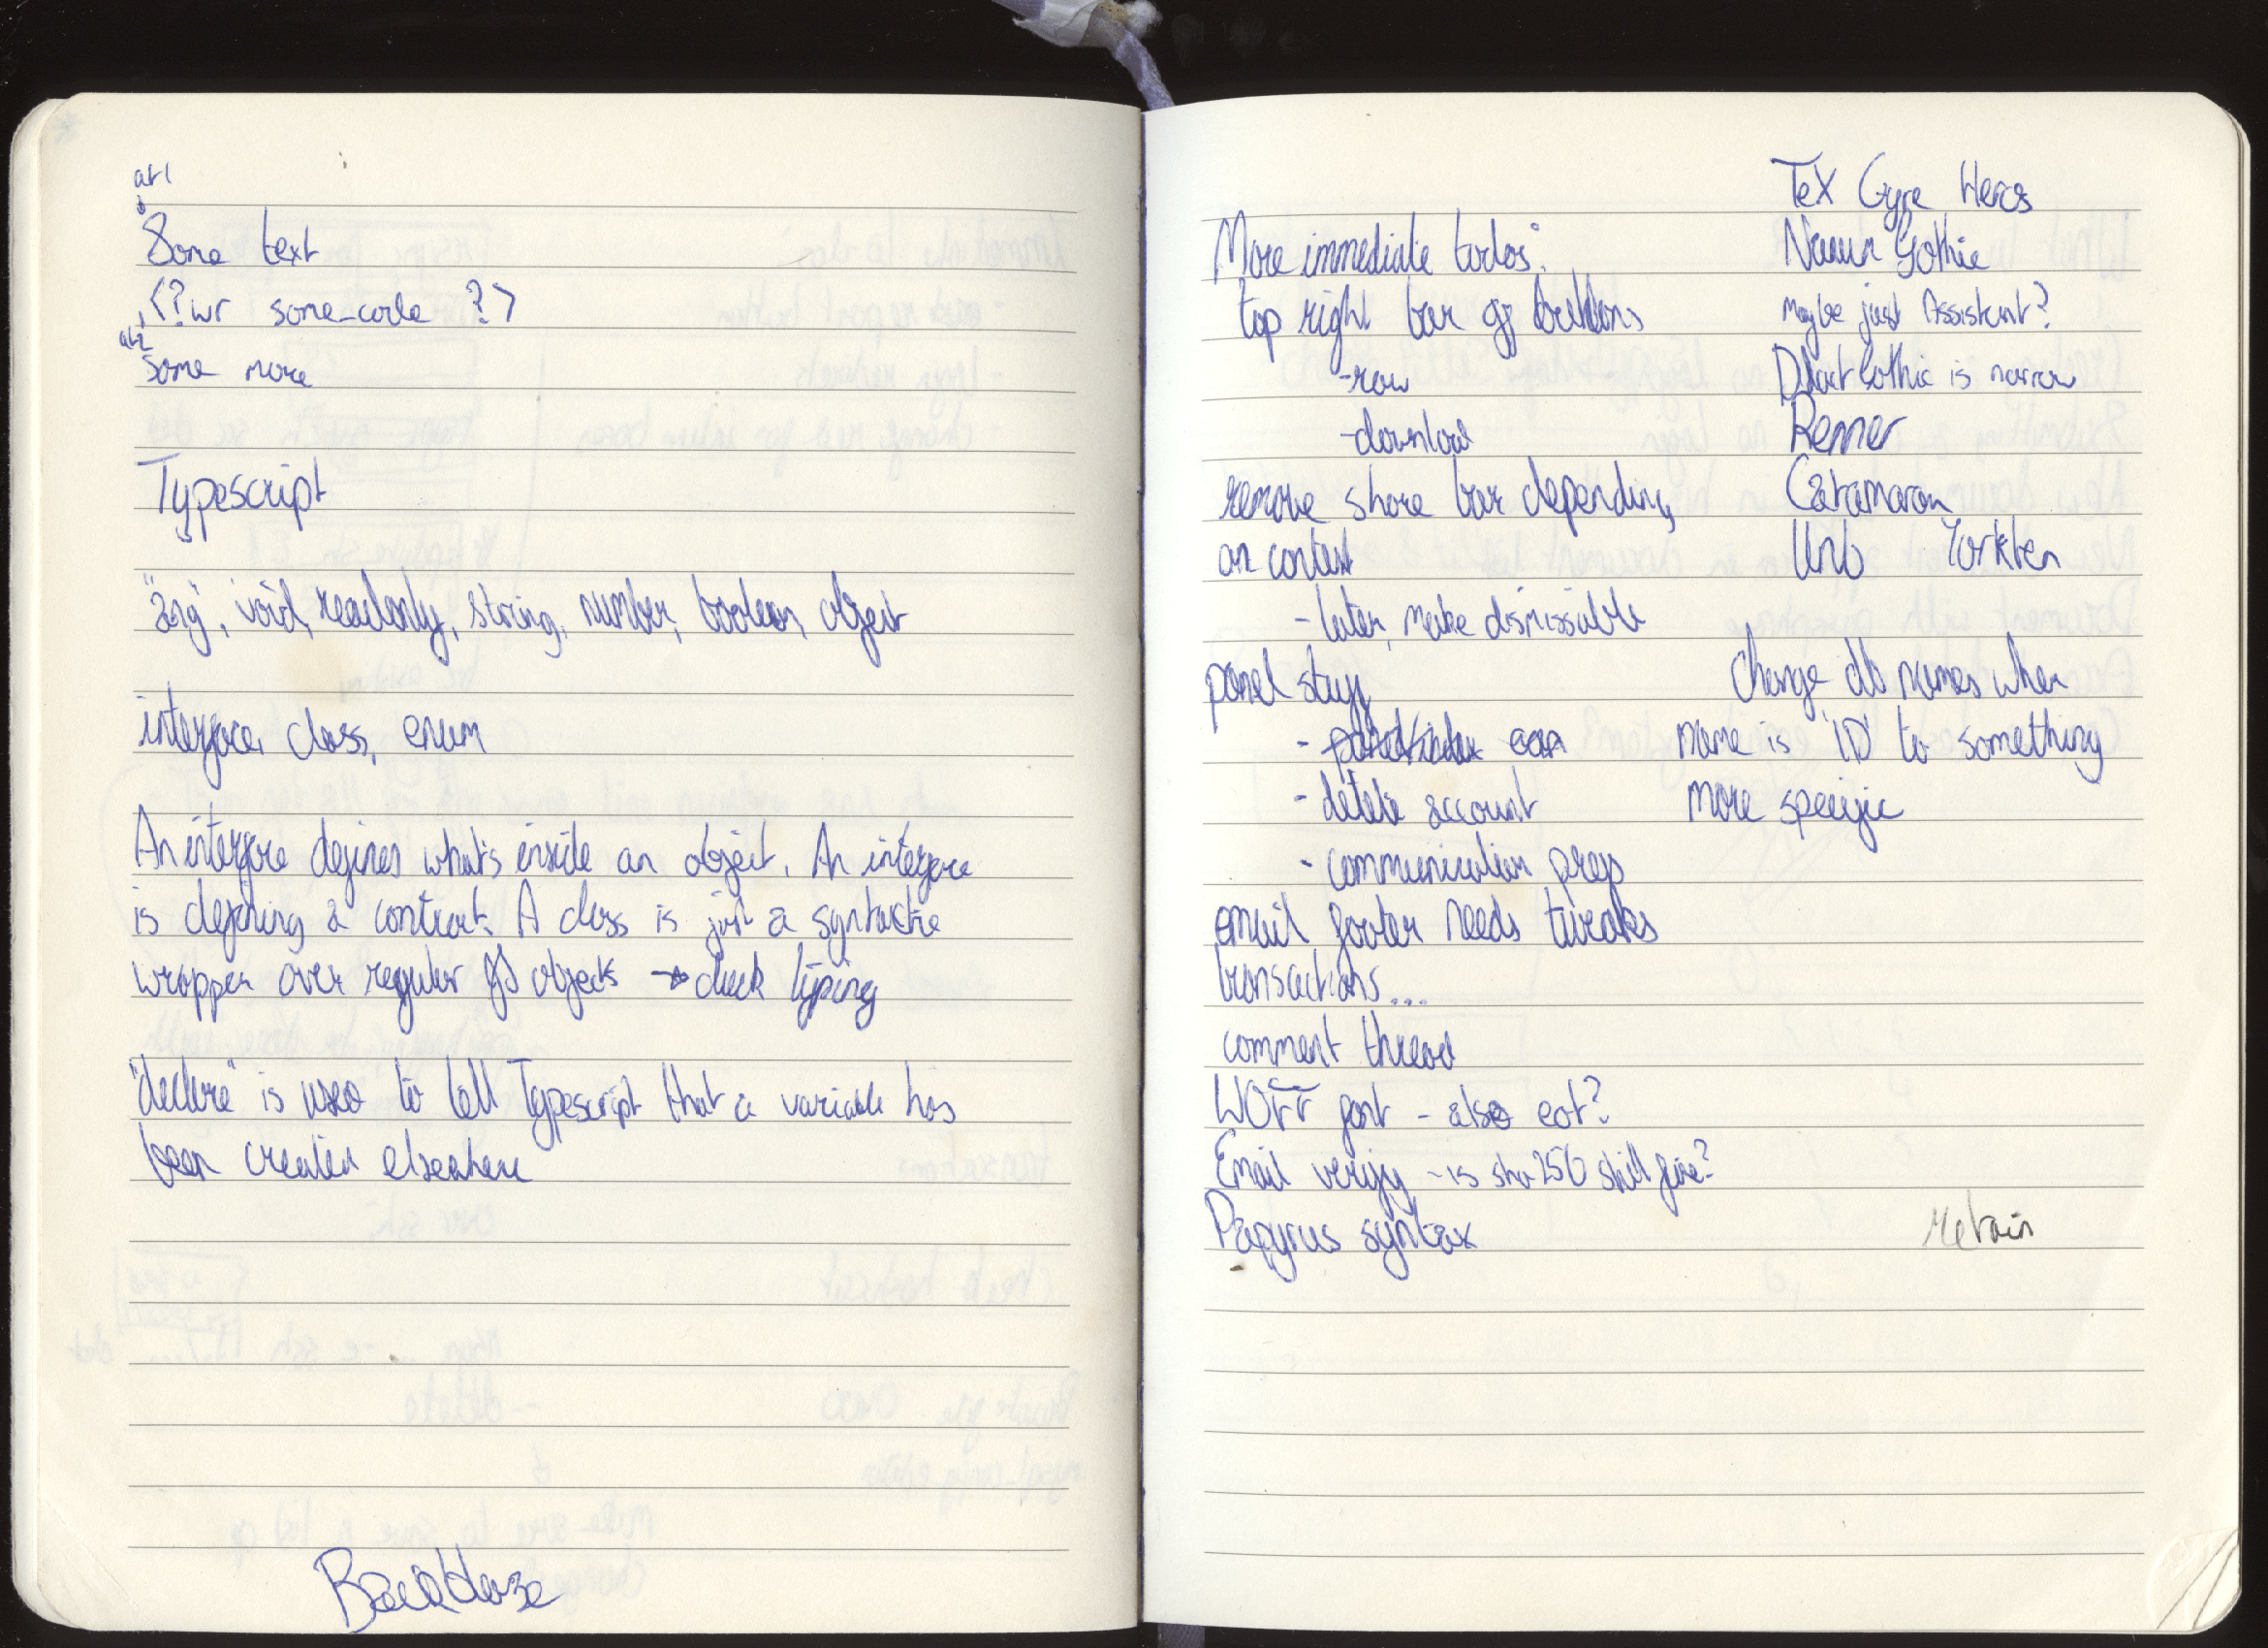 art1
Some text
<?wr some-code ?>
art2
Some more
Typescript
"any", void, readonly, string, number, boolean, object
interface, class, enum
An interface defines what's inside an object. An interface
is defining a contract. A class is just a syntactic
wrapper over regular JS objects → duck typing
"declare" is used to tell Typescript that a variable has
been created elsewhere
Backblaze
More immediate todos:
top right bar of buttons
-raw
-download
remove share bar depending
on context
- later, make dismissible
panel stuff
- delete account
- communication prefs
email footer needs tweaks
transactions...
comment thread
WOFF font - also eot?
Email verify - is sha256 still fine?
Papyrus syntax
TeX Gyre Heros
Gothic
Maybe just Assistant?
Gothic is narrow
Renner
Catamaran
Unb Yorkten
change db names when
name is 'ID' to something
more specific